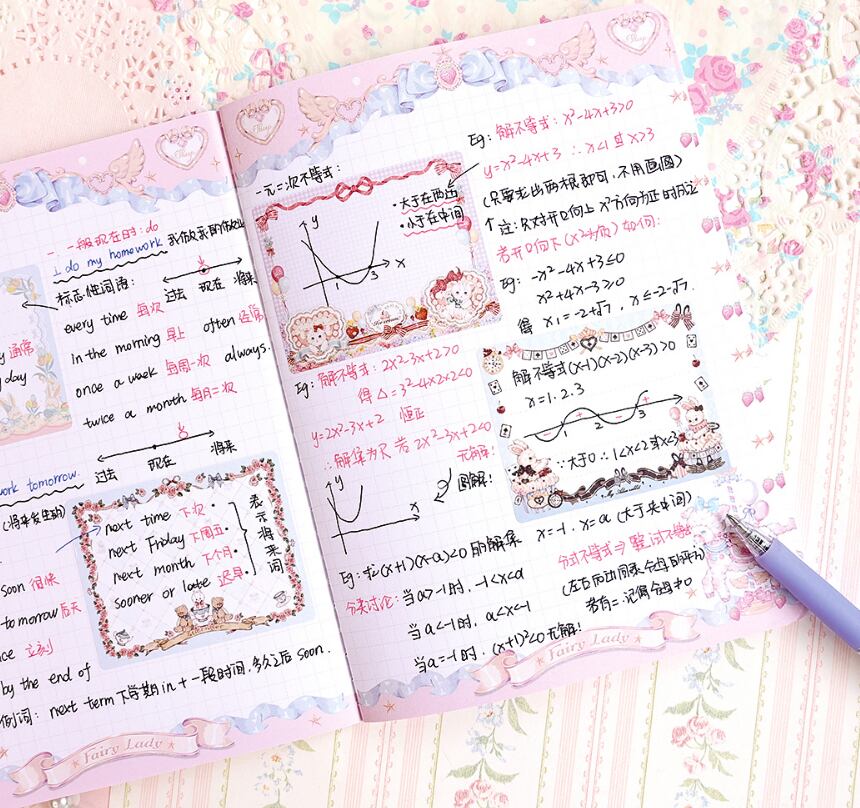 一. 一般现在时: do
I do my homework 我做家庭作业
标志性词语:
过去 现在 将来
every time 每次
in the morning 早上 often 经常
once a week 每周一次 always.
twice a month 每月二次
通常
day
过去 现在 将来
work tomorrow.
(将来发生的)
next time 下次
next Friday 下周五
next month 下个月
sooner or late 迟早
表示将来词
soon 很快
tomorrow 后天
立刻
by the end of
例词: next term 下学期 in + 一段时间, 多久之后 soon.
Fairy Lady
一元二次不等式:
y
x
1 3
• 大于在两边
• 小于在中间
Eg: 解不等式: 2x²-3x+2>0
得 Δ=3²-4×2×2<0
y=2x²-3x+2 恒正
∴解集为R 若 2x²-3x+2<0
无解!
图解!
y
x
Eg: 求(x+1)(x-a)<0 的解集
分类讨论: 当a>-1时, -1<x<a
当a<-1时, a<x<-1
当a=-1时, (x+1)²<0 无解!
Eg: 解不等式: x²-4x+3>0
y=x²-4x+3 ∴x<1 或 x>3
(只要求出两根即可, 不用画图)
注: 只对开口向上 x²方向为正时成立
若开口向下(x²为负)如何:
Eg: -x²-4x+3≤0
x²+4x-3≥0
得 x₁=-2+√7, x≤-2-√7.
解不等式(x-1)(x-2)(x-3)>0
x=1.2.3
- + - +
1 2 3
∵大于0 ∴1<x<2或x<3
x=-1, x=a (大于夹中间)
分式不等式⇒整式不等式
(左右同时同乘分母的平方)
若有=记得分母≠0
Fairy Lady